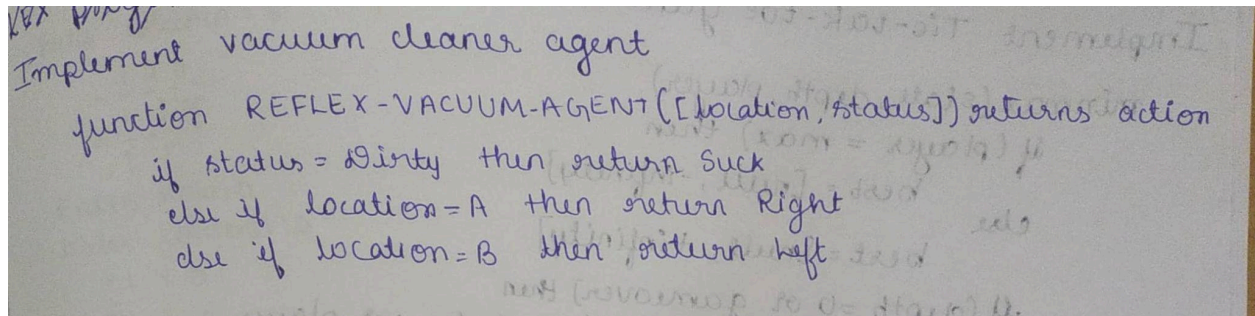 Implement vacuum cleaner agent
function REFLEX-VACUUM-AGENT ([Location, status]) returns action
if status = Dirty then return Suck
else if location = A then return Right
else if location = B then return Left